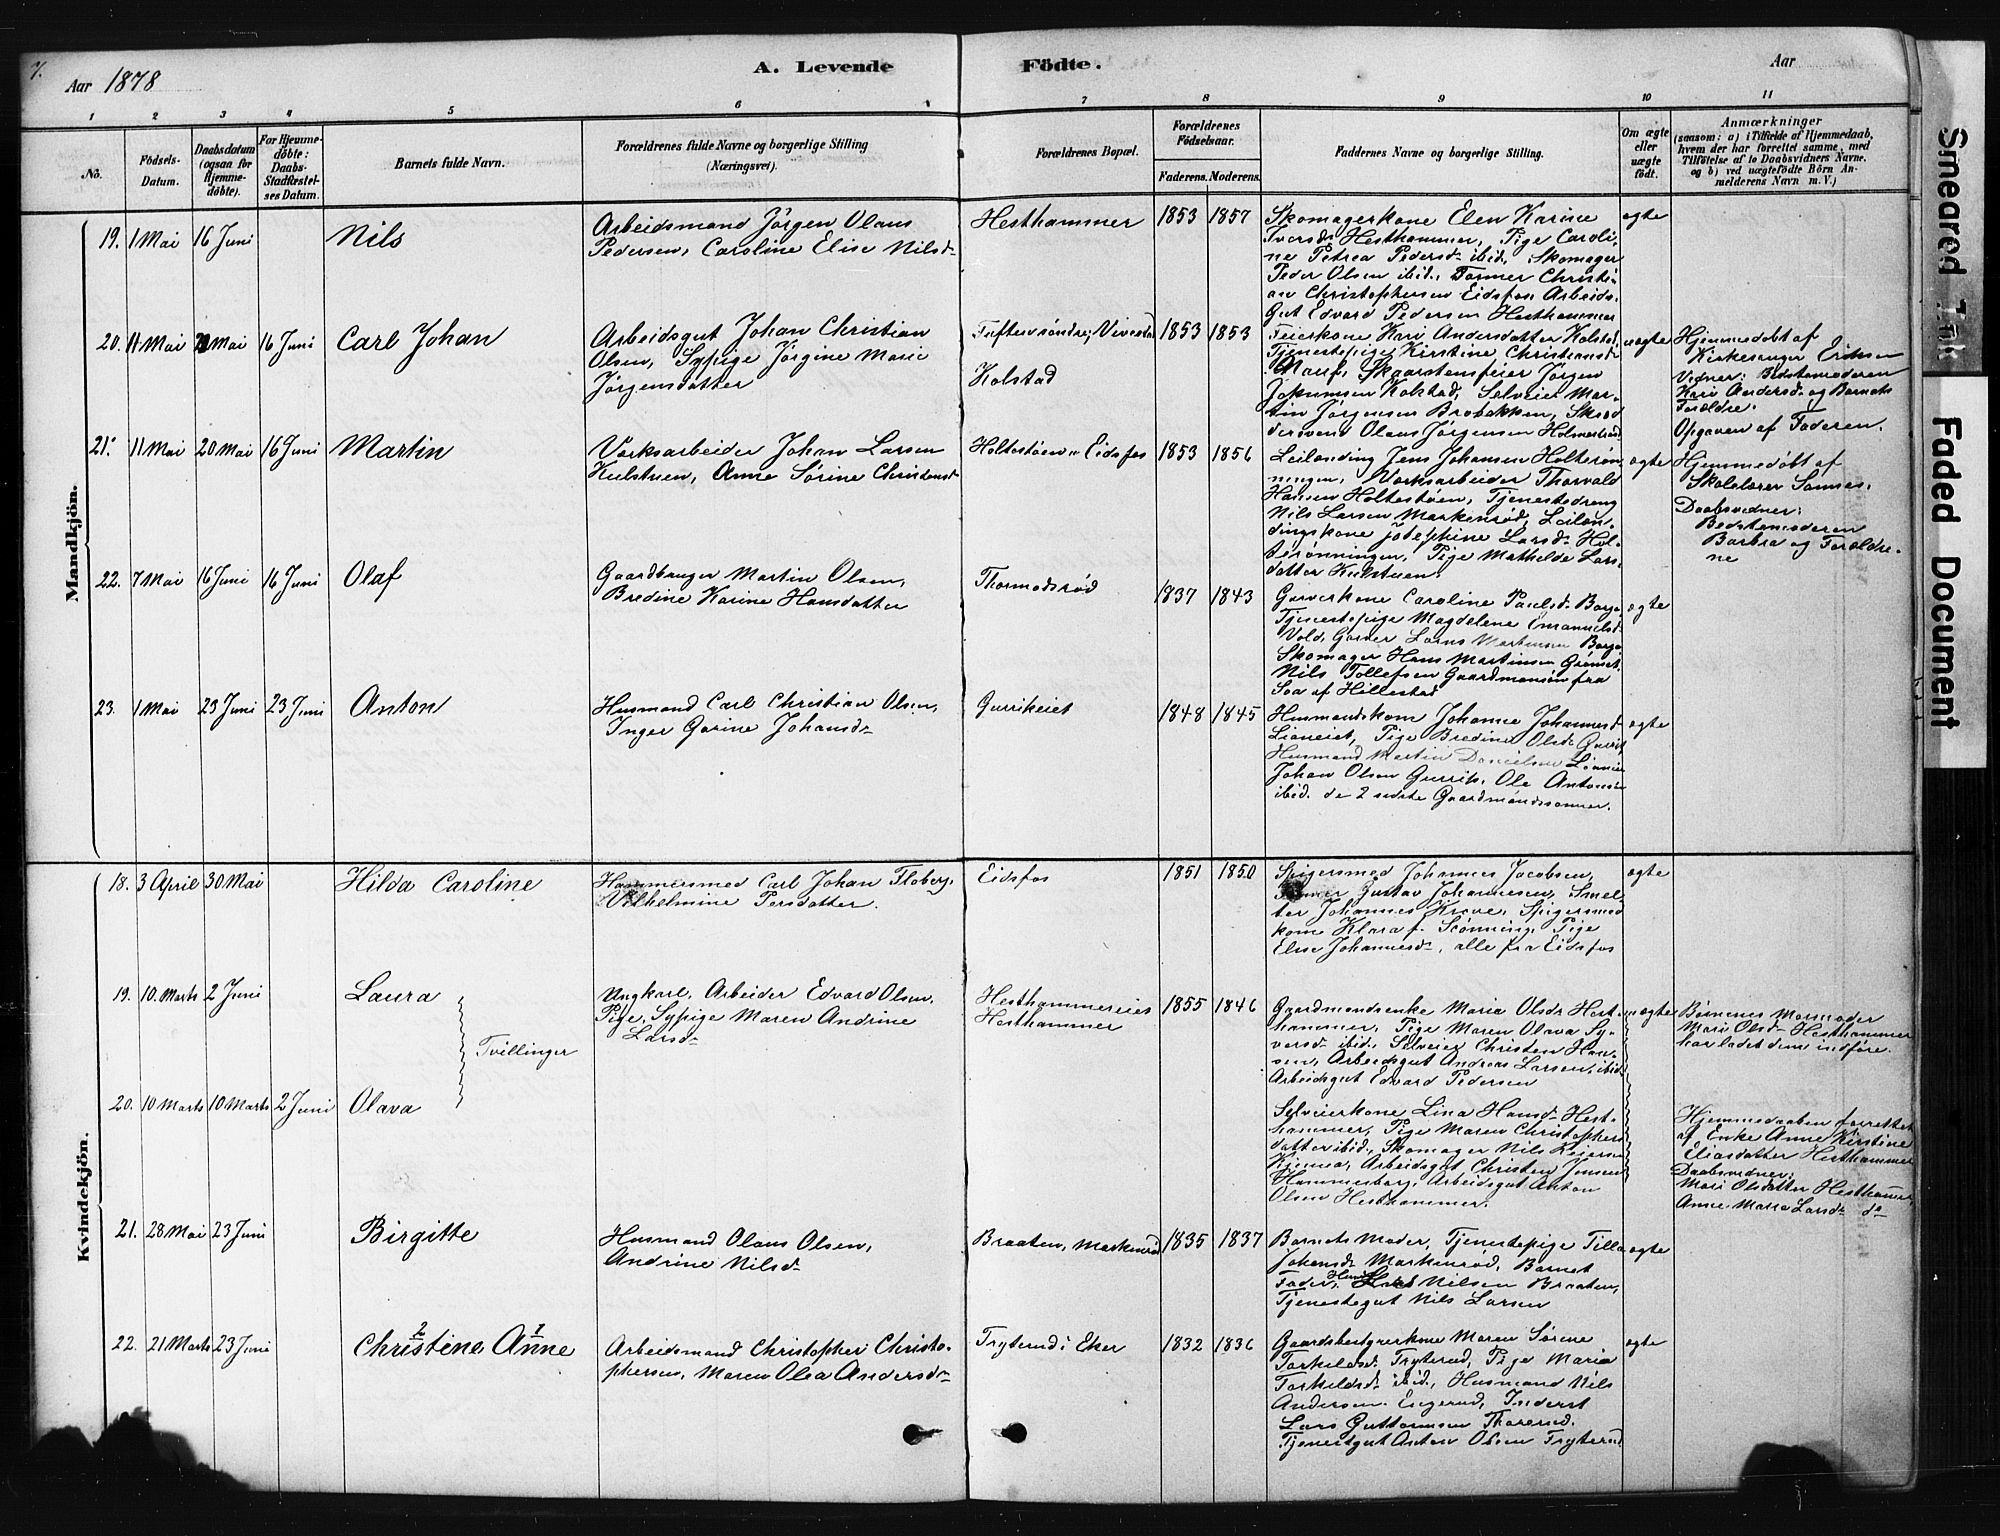 7.
Aar 1878
A. Levende Födte.
Aar
1 2 3 4 5 6 7 8 9 10 11
No.
Födsels-Datum.
Daabsdatum (ogsaa for Hjemme-döbte).
For Hjemme-döbte: Daabs-Stadfæstel-ses Datum.
Barnets fulde Navn.
Forældrenes fulde Navne og borgerlige Stilling
(Næringsvei).
Forældrenes Bopæl.
Forældrenes Födselsaar.
Faderens. Moderens.
Faddernes Navne og borgerlige Stilling.
Om ægte eller uægte födt.
Anmærkninger
(saasom: a) i Tilfælde af Hjemmedaab,
hvem der har forrettet samme, med
Tilföielse af to Daabsvidners Navne.
og b) ved uægtefödte Börn An-
melderens Navn m. V.)
Mandkjön.
19. 1 Mai 16 Juni
Nils
Arbeidsmand Jørgen Olaus
Pedersen, Caroline Elise Nilsd
Hesthammer
1853 1857
Skomagerkone Elen Karine
Iversd Hesthammer, Pige Caroli,
ne Petrea Pedersd ibid, Skomager
Peder Olsen ibid, Former Christi
an Christophersen Eidsfos, Arbeids
Gut Edvard Pedersen Hesthammer
ægte
20. 11 Mai Mai 16 Juni
Carl Johan
Arbeidsgut Johan Christian
Olsen, Sypige Jørgine Marie
Jørgensdatter
Tuftersøndre, Vivestad
Kolstad
1853 1853
Feierkone Kari Andersdatter Kolstad,
Tjenestepige Kirstine Christiansd
Skaarstensfeier Jørgen
Jokumsen Kolstad, Selveier Mar-
tin Jørgensen Brobakken, Skræd
dersvend Olaus Jørgensen Holmestrand
uægte
Hjemmedøbt af
Kirkesanger Eriksen
Vidner: Bedstemoderen
Kari Andersd og Barnets
Forældre.
Opgaven af Faderen.
21. 11 Mai 20 Mai 16 Juni
Martin
Værksarbeider Johan Larsen
Kulstuen, Anne Sørine Christensd
Holtestøen, Eidsfos
1853 1856
Leilending Jens Johansen Holterøn
ningen, Værksarbeider Thorvald
Hansen Holtestøen, Tjenestedreng
Nils Larsen Markenrød, Leilæn-
dingskone Josephine Larsd Hol-
terønningen, Pige Mathilde Lars
datter Kulstuen.
ægte
Hjemmedøbt af
Skolelærer Sannes.
Daabsvidner:
Bedstemoderen
Barbra og Foreldre-
ne
22. 7 Mai 16 Juni 16 Juni
Olaf
Gaardbruger Martin Olsen,
Bredine Karine Hansdatter
Thormodsrød
1837 1843
Garverkone Caroline Paulsd Berge
Tjenestepige Magdelene Emanuelsd
Vold, Garver Lars Martinsen Berge
Skomager Hans Martinsen
Nils Tollefsen Gaardmandsøn fra
Søa af Hillestad
ægte
23. 1 Mai 23 Juni 23 Juni
Anton
Husmand Carl Christian Olsen,
Inger Gorine Johansd
Gurrikeiet
1848 1845
Husmandskone Johanne Johannesd
Pige Bredine Olsd
Husmand Martin Danielsen
Johan Olsen Gurrik, Ole Antonsen
ibid. de 2 sidste Gaardmandssønner.
ægte
Kvindekjön.
18. 3 April 30 Mai
Hilda Caroline
Hammersmed Carl Johan Floberg,
Vilhelmine Persdatter.
Eidsfos
1851 1850
Spigersmed Johannes Jacobsen,
Gustav Johannesen, Smel-
ter Johannes Spigersmed
kone Klara f. Rønning, Pige
Elise Johannesd, alle fra Eidsfos
ægte
19. 10. Marts 2 Juni
Laura
Tvillinger
Ungkarl, Arbeider Edvard Olsen,
Pige, Sypige Maren Andrine
Larsd
Hesthammereiet
Hesthammer
1855 1846
Gaardmandsenke Maria Olsd Hest-
hammer, Pige Maren Olava Sy-
versd ibid, Selveier Christen Han-
sen, Arbeidsgut Andreas Larsen, ibid
Arbeidsgut Edvard Pedersen
uægte
Børnenes Mormoder
Mari Olsd Hesthammer
har ladet dem indføre.
20. 10 Marts 10 Marts 2 Juni
Olava
Selveierkone Lina Hansd Hest-
hammer, Pige Maren Christophers
datter ibid, Skomager Nils
Arbeidsgut Christen Jensen
Hammersborg, Arbeidsgut Anton
Olsen Hesthammer.
Hjemmedaaben forrettet
af Enke Anne Kirstine
Eliasdatter Hesthammer
Daabsvidner:
Mari Olsdatter Hesthammer,
Anne Maria Larsd do
21. 28 Mai 23 Juni
Birgitte
Husmand Olaus Olsen,
Andrine Nilsd
Braaten, Markenrød
1835 1837
Barnets Moder, Tjenestepige Tilla
Johansd Markenrød, Barnet
Fader, Nilsen Braaten,
Tjenestegut Nils Larsen
ægte
22. 21 Marts 23 Juni
2 1
Christine Anne
Arbeidsmand Christopher Christo-
phersen, Maren Olea Andersd
Tryterud i Eker
1832 1836
Gaardbestyrerkone Maren Sørine
Torkildsd Tryterud, Pige Maria
Torkildsd ibid, Husmand Nils
Andersen Engerud, Inderst
Lars Guttormsen Thorerud,
Tjenestgut Anton Olsen Tryterud
ægte
Smeared Ink
Faded Document